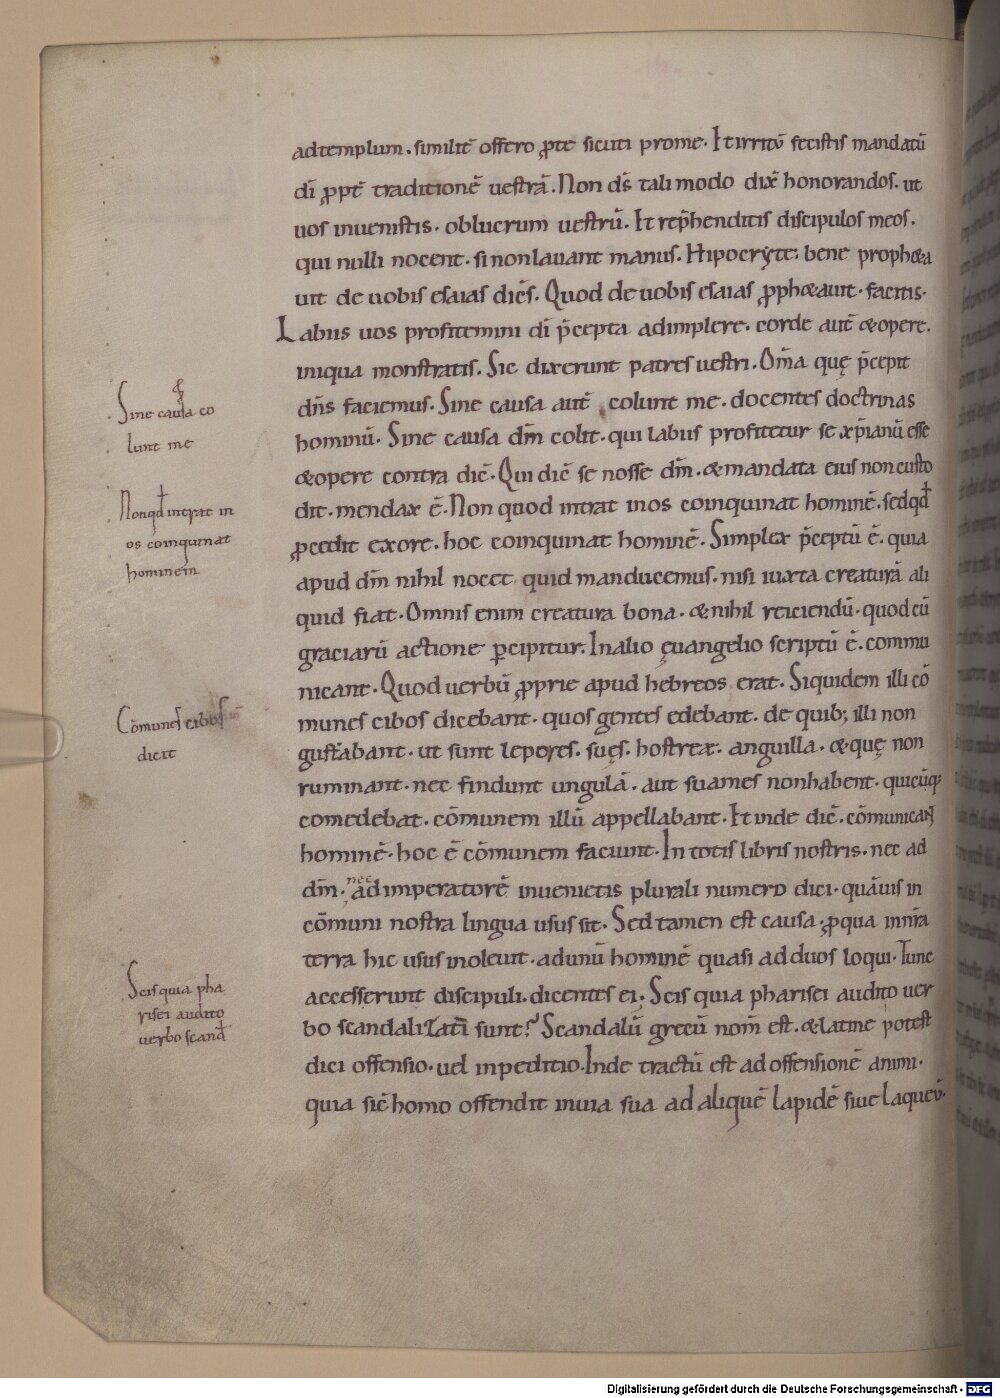 ad templum. similit̄ offero ꝓ te sicuti pro me. Et irritū fecistis mandatū
dī ꝓpt̄ traditionē uestrā. Non d̄s tali modo dix̄ honorandos. ut
uos inuenistis. oblucrum uestrū. Et rep̄henditis discipulos meos.
qui nulli nocent. si non lauant manus. Hipocryte: bene propheta
uit de uobis esaias diēs. Quod de uobis esaias ꝓphetauit. facitis.
Labiis uos profitemini dī p̄cepta adimplere. corde aut̄ & opere.
iniqua monstratis. Sic dixerunt patres uestri. Om̄a quę p̄cepit
dn̄s faciemus. Sine causa aut̄ colunt me. docentes doctrinas
hominū. Sine causa dm̄ colit. qui labiis profitetur se xp̄ianū esse
& opere contra dic̄. Qui dic̄ se nosse dm̄. & mandata eius non custo
dit. mendax ē. Non quod intrat in os coinquinat hominē. sed qđ
ꝓcedit ex ore. hoc coinquinat hominē. Simplex p̄ceptū ē. quia
apud dm̄ nihil nocet quid manducemus. nisi iuxta creaturā ali
quid fiat. Omnis enim creatura bona. & nihil reiciendū. quod cū
graciarū actione ꝑcipitur. In alio ęuangelio scriptū ē. commu
nicant. Quod uerbū ꝓprie apud hebreos erat. Siquidem illi cō
munes cibos dicebant. quos gentes edebant. de quib; illi non
gustabant. ut sunt lepores. suęs. hostreæ. anguilla. & quę non
ruminant. nec findunt ungulā. aut squames non habent. quicūq;
comedebat. cōmunem illū appellabant. Et inde dic̄. cōmunicant
hominē. hoc ē cōmunem faciunt. In totis libris nostris. nec ad
dm̄. nec ad imperatorē inuenietis plurali numero dici. quāuis in
cōmuni nostra lingua usus sit. Sed tamen est causa. ꝓ qua in nr̄a
terra hic usus inoleuit. ad unū hominē quasi ad duos loqui. Tunc
accesserunt discipuli. dicentes ei. Scis quia pharisei audito uer
bo scandalizati sunt? Scandalū grecū nom̄ est. & latine potest
dici offensio. uel inpeditio. Inde tractū est ad offensionē animi.
quia sic̄ homo offendit in uia sua ad aliquē lapidē siue laqueū.
Sine causa co
lunt me
Non qđ intrat in
os coinquinat
hominem
Cōmunes cibos
dicit
Scis quia pha
risei audito
uerbo scand
Digitalisierung gefördert durch die Deutsche Forschungsgemeinschaft - DFG